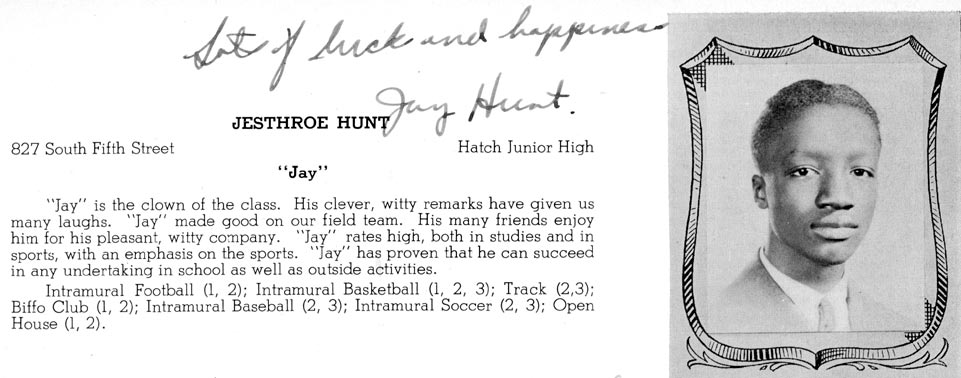 Lots of luck and happiness
Jay Hunt.
JESTHROE HUNT
827 South Fifth Street Hatch Junior High
"Jay"
"Jay" is the clown of the class. His clever, witty remarks have given us
many laughs. "Jay" made good on our field team. His many friends enjoy
him for his pleasant, witty company. "Jay" rates high, both in studies and in
sports, with an emphasis on the sports. "Jay" has proven that he can succeed
in any undertaking in school as well as outside activities.
Intramural Football (1, 2); Intramural Basketball (1, 2, 3); Track (2,3);
Biffo Club (1, 2); Intramural Baseball (2, 3); Intramural Soccer (2, 3); Open
House (1, 2).